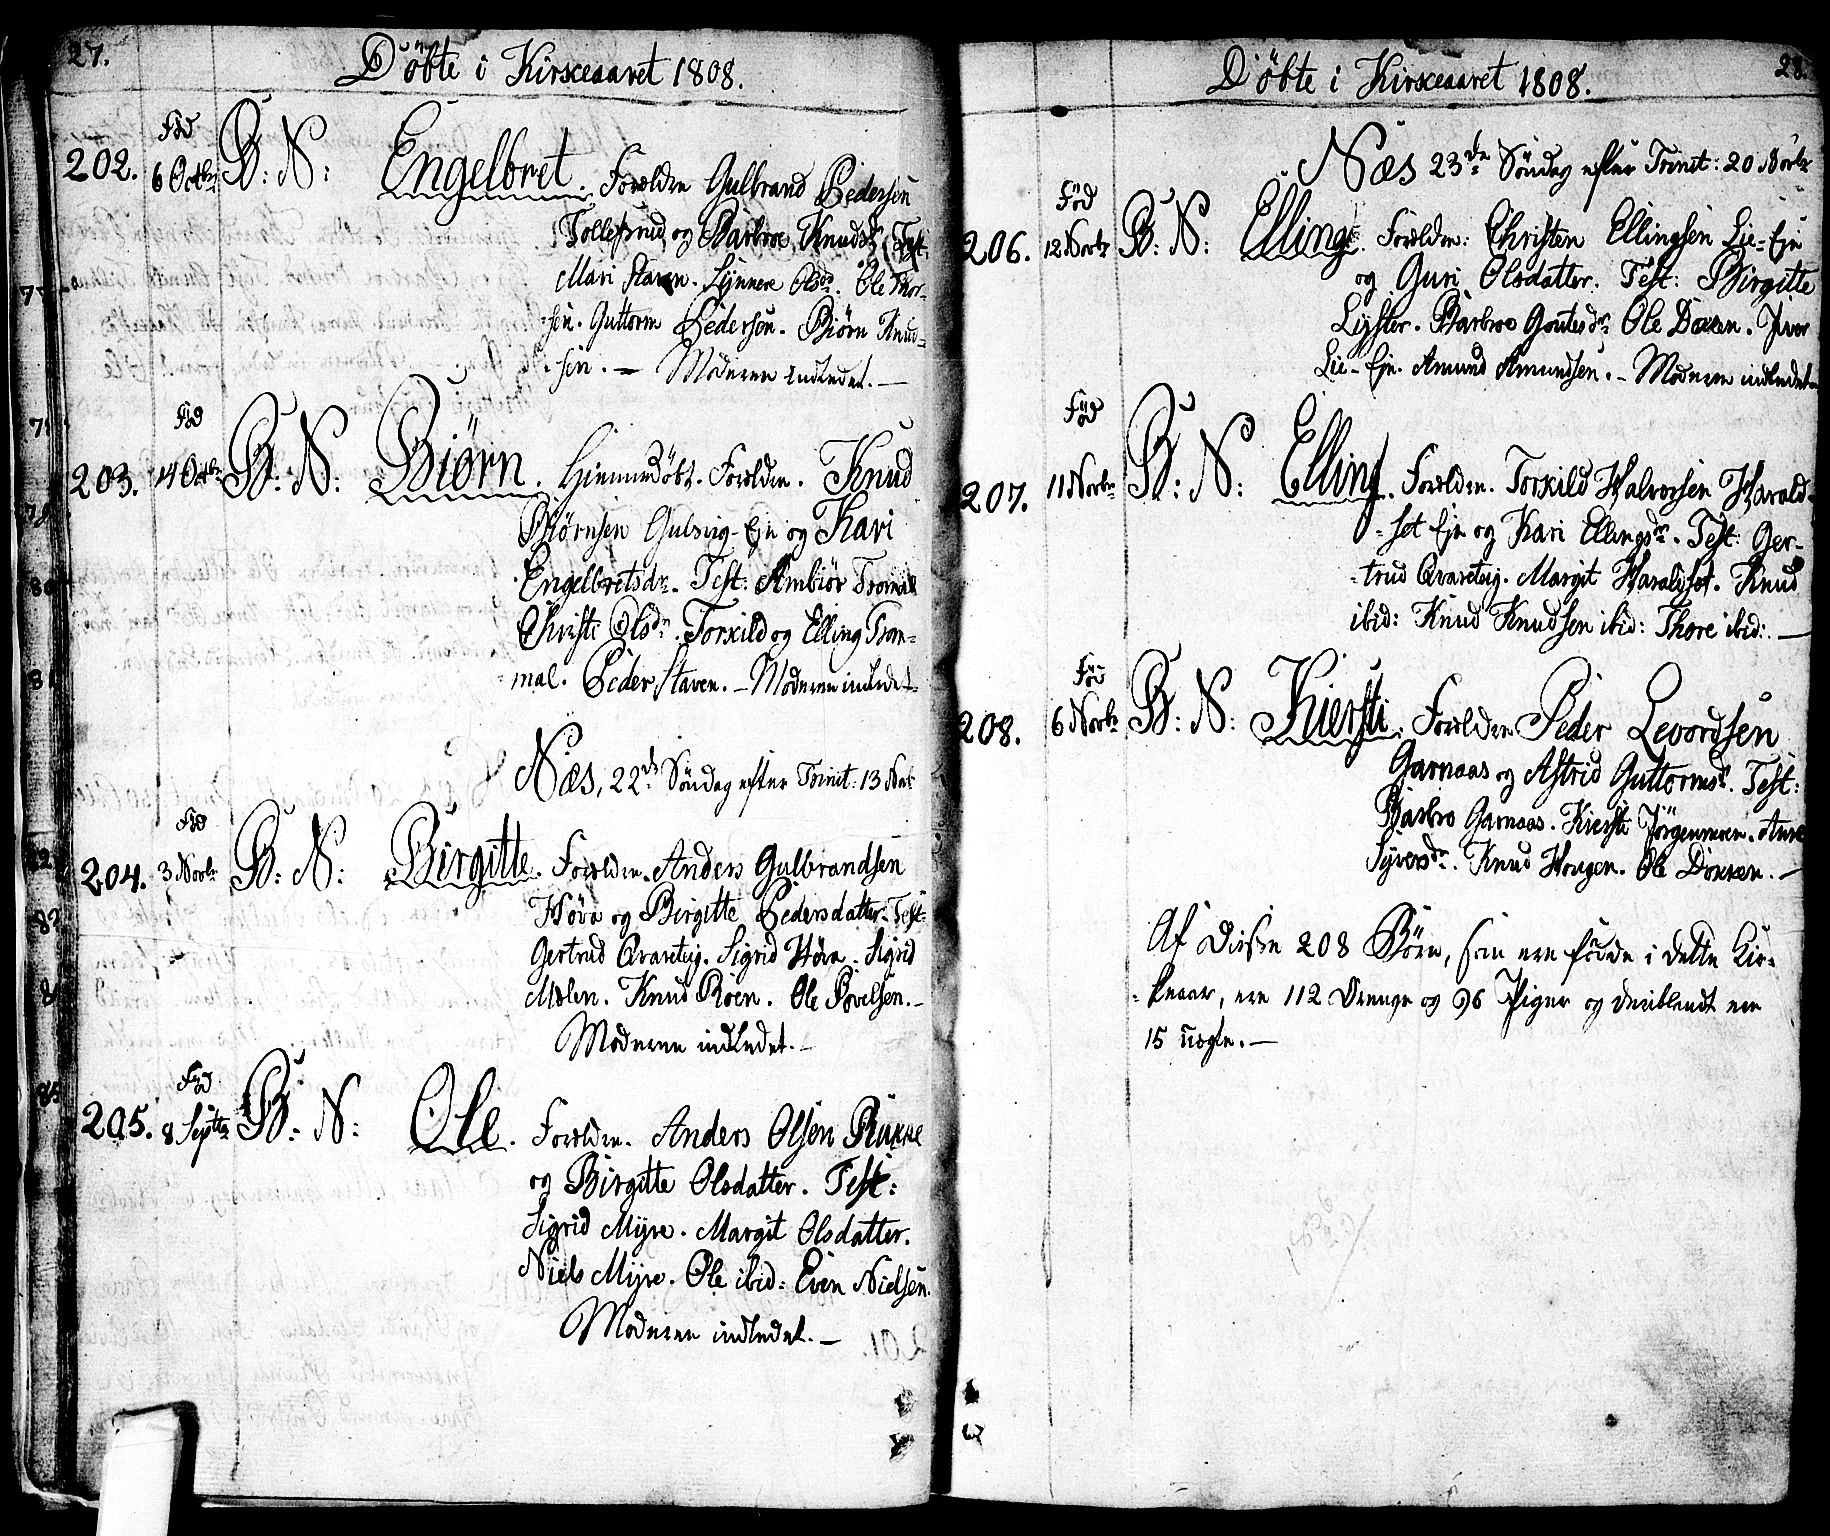 27.
Döbte i Kirkeaaret 1808.
Föd
202. 6 Octbr B: N: Engelbret. Forældre Gulbrand Pedersen
Tollefsrud og Barbroe Knudsdr. Test:
Mari Staven. Synnere Olsdr. Ole Thor-
-sen. Guttorm Pedersen. Biørn Knud-
-sen. — Moderen indledet. —
Föd
203. 14 Octbr B: N: Biørn. Hiemmedöbt. Forældre. Knud
Biørnsen Gulsvig-Eje og Kari
Engelbretsdr. Test: Ambiør Trommal
Christi Olsdr. Torkild og Elling Trom-
-mal. Peder Staven. — Moderen indledet
Næs, 22de Söndag efter Trinit: 13 Novbr
Föd
204. 3 Novbr B: N: Birgitte. Forældre. Anders Gulbrandsen
Høva og Birgitte Pedersdatter. Test:
Gertrud Qvareteig. Sigrid Høva. Sigrid
Molen. Knud Roen. Ole Povelsen. —
Moderen indledet. —
Föd
205. 8 Septbr B: N: Ole. Forældre. Anders Olsen Rukke
og Birgitte Olsdatter. Test:
Sigrid Myre. Margit Olsdatter.
Niels Myre. Ole ibid: Even Nielsen.
Moderen indledet. —
28.
Döbte i Kirkeaaret 1808.
Næs 23de Söndag efter Trinit: 20 Novbr
Föd
206. 12 Novbr B: N: Elling. Forældre: Christen Ellingsen Lie-Eje
og Guri Olsdatter. Test: Birgitte
Lyster. Barbroe Goutesdr. Ole Dokken. Iver
Lie-Eje. Amund Amundsen. — Moderen indledet
Föd
207. 11 Novbr B: N: Elling. Forældre. Torkild Halvorsen Harald-
-set Eje og Kari Ellingsdr. Test: Ger-
-trud Qvareteig. Margit Haraldset. Knud
ibid: Knud Knudsen ibid: Thore ibid: —
Föd
208. 6 Novbr B: N: Kiersti. Forældre Peder Levordsen
Garnaas og Astrid Guttormsdr. Test:
Barbro Garnaas. Kiersti Jörgenmoen. Anne
Syversdr. Knud Hougen. Ole Dokken. —
Af disse 208 Börn, som ere födde i dette Kir-
-keaar, ere 112 Drenge og 96 Piger og deriblandt ere
15 uægte. —